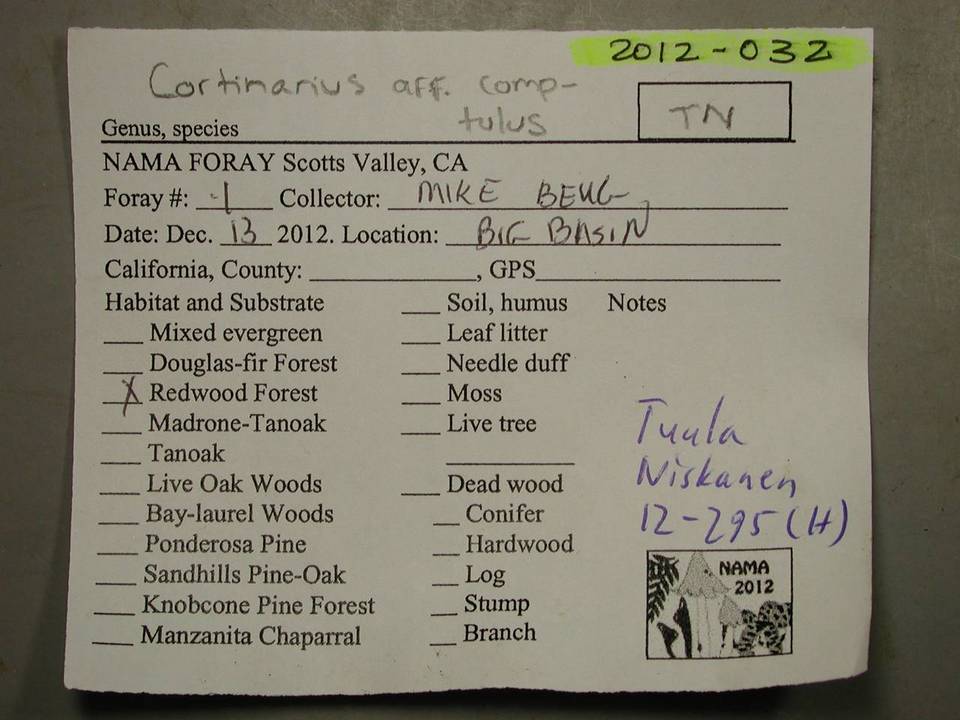 2012-032
Cortinarius aff. comp-
tulus
TN
Genus, species
NAMA FORAY Scotts Valley, CA
Foray #: 1 Collector: MIKE BEUG
Date: Dec. 13 2012. Location: BIG BASIN
California, County: ____________, GPS____________
Habitat and Substrate
___ Mixed evergreen
___ Douglas-fir Forest
X Redwood Forest
___ Madrone-Tanoak
___ Tanoak
___ Live Oak Woods
___ Bay-laurel Woods
___ Ponderosa Pine
___ Sandhills Pine-Oak
___ Knobcone Pine Forest
___ Manzanita Chaparral
___ Soil, humus
___ Leaf litter
___ Needle duff
___ Moss
___ Live tree
___ Dead wood
__ Conifer
__ Hardwood
__ Log
__ Stump
__ Branch
Notes
Tuula
Niskanen
12-295 (H)
NAMA
2012